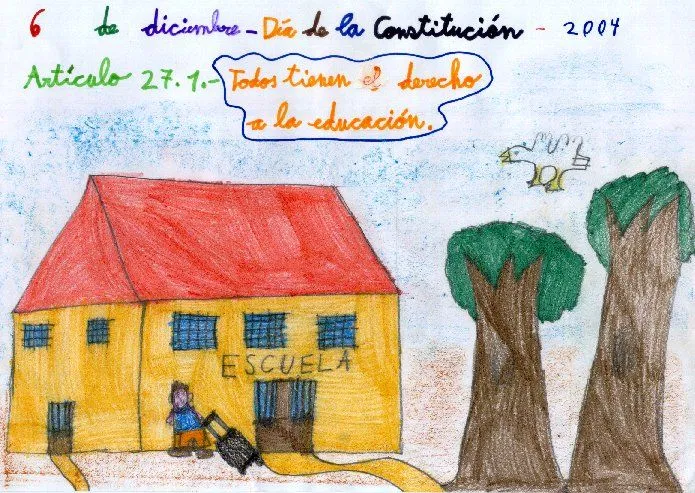 6 de diciembre - Día de la Constitución - 2004
Artículo 27.1.- Todos tienen el derecho
a la educación.
ESCUELA